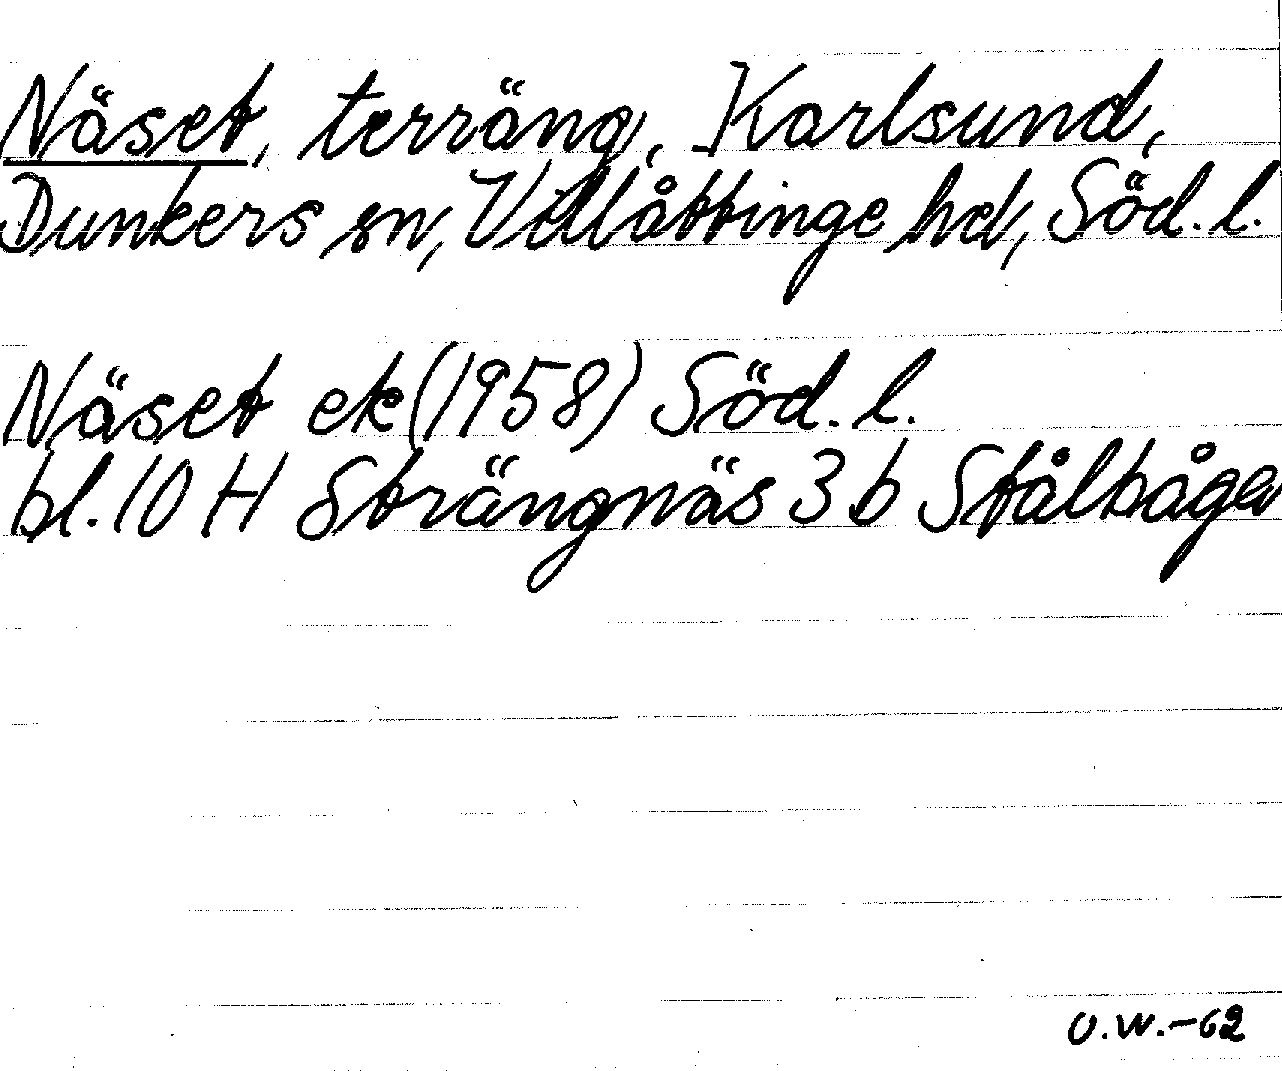 Näset, terräng, Karlsund,
Dunkers sn, Villåttinge hd, Söd. l.
Näset ek (1958) Söd. l.
bl. 10 H Strängnäs 3 b Stålboga
O.W.-62